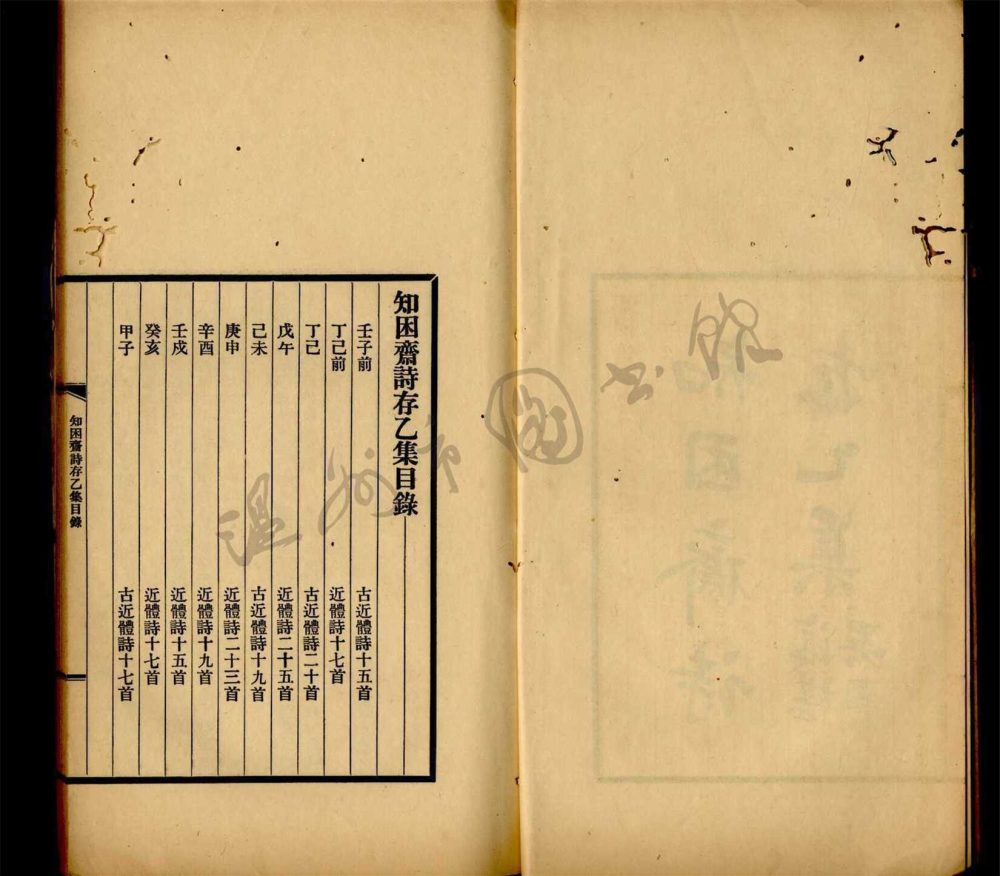 知困齋詩存乙集目錄
壬子前 古近體詩十五首
丁己前 近體詩十七首
丁己 古近體詩二十首
戊午 近體詩二十五首
己未 古近體詩十九首
庚申 近體詩二十三首
辛酉 近體詩十九首
壬戌 近體詩十五首
癸亥 近體詩十七首
甲子 古近體詩十七首
知困齋詩存乙集目錄
温州市圖書館